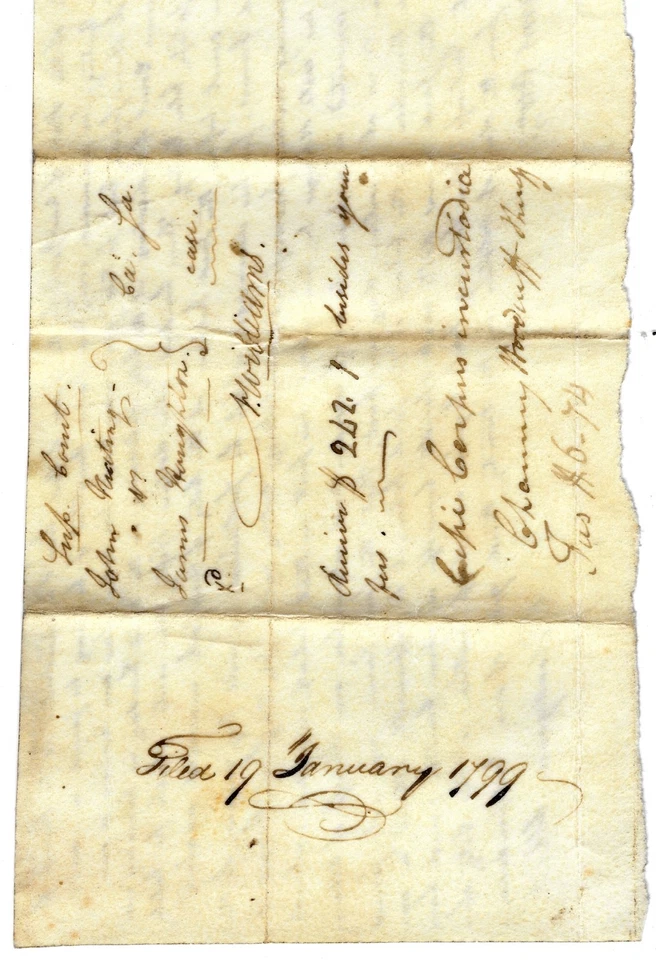 Sup. Court.
John Keating
vs
James Houghton.
Ca. Sa.
case.
Williams.
Receive $ 242. 9 besides your
fees.
Cepi Corpus in custodia
Chauncy Woodruff Shff
Fees $6-74
Filed 19 January 1799